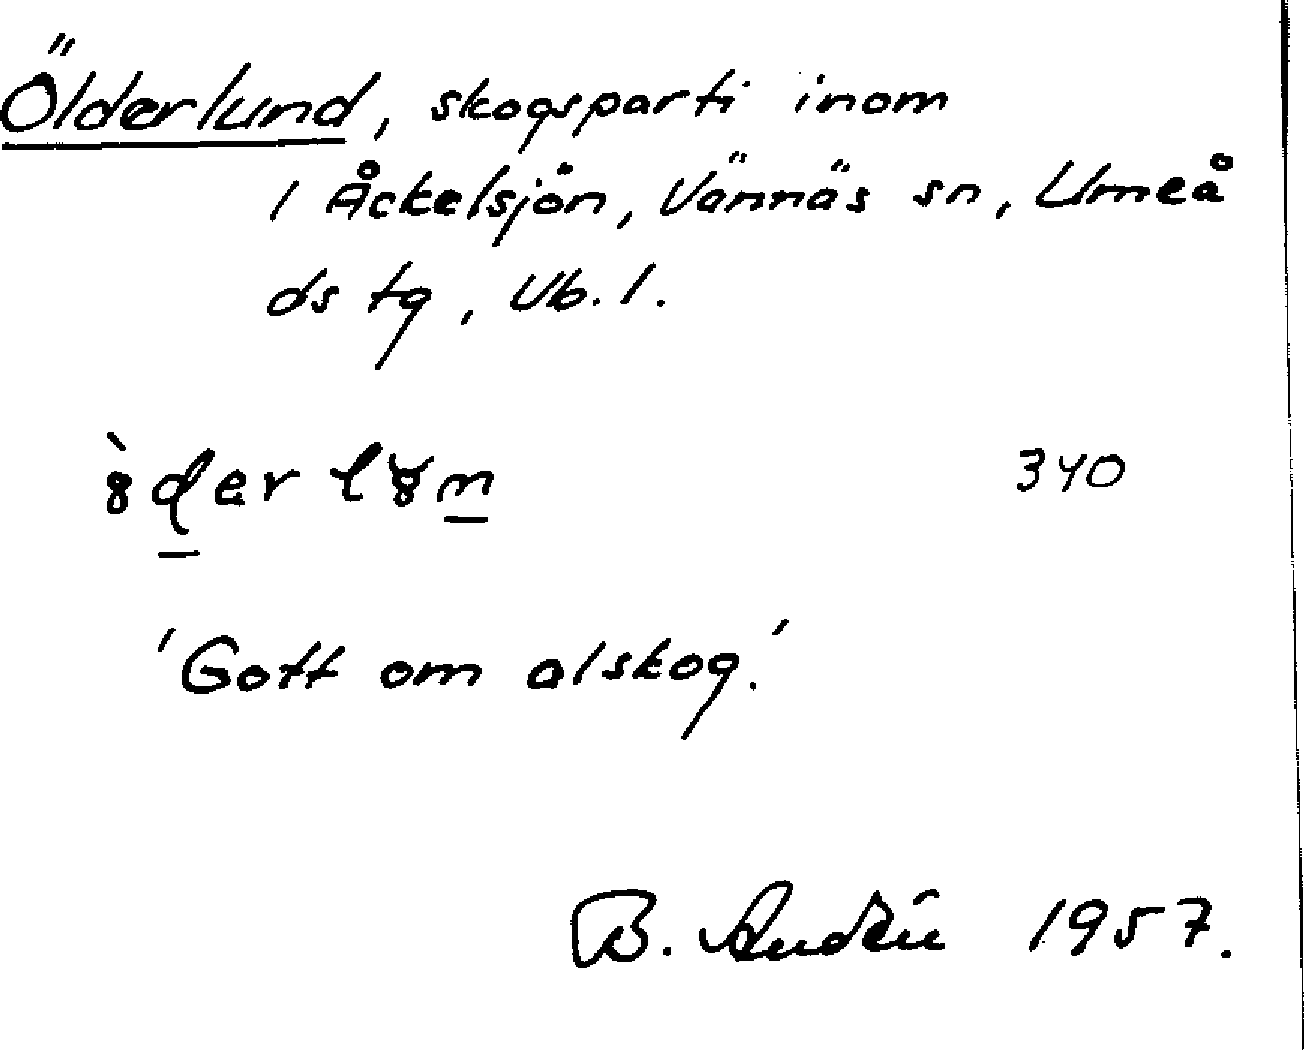 Ölderlund, skogsparti inom
1 Åckelsjön, Vännäs sn, Umeå
ds tg, Vb. l.
340
'Gott om alskog.'
B. 1957.